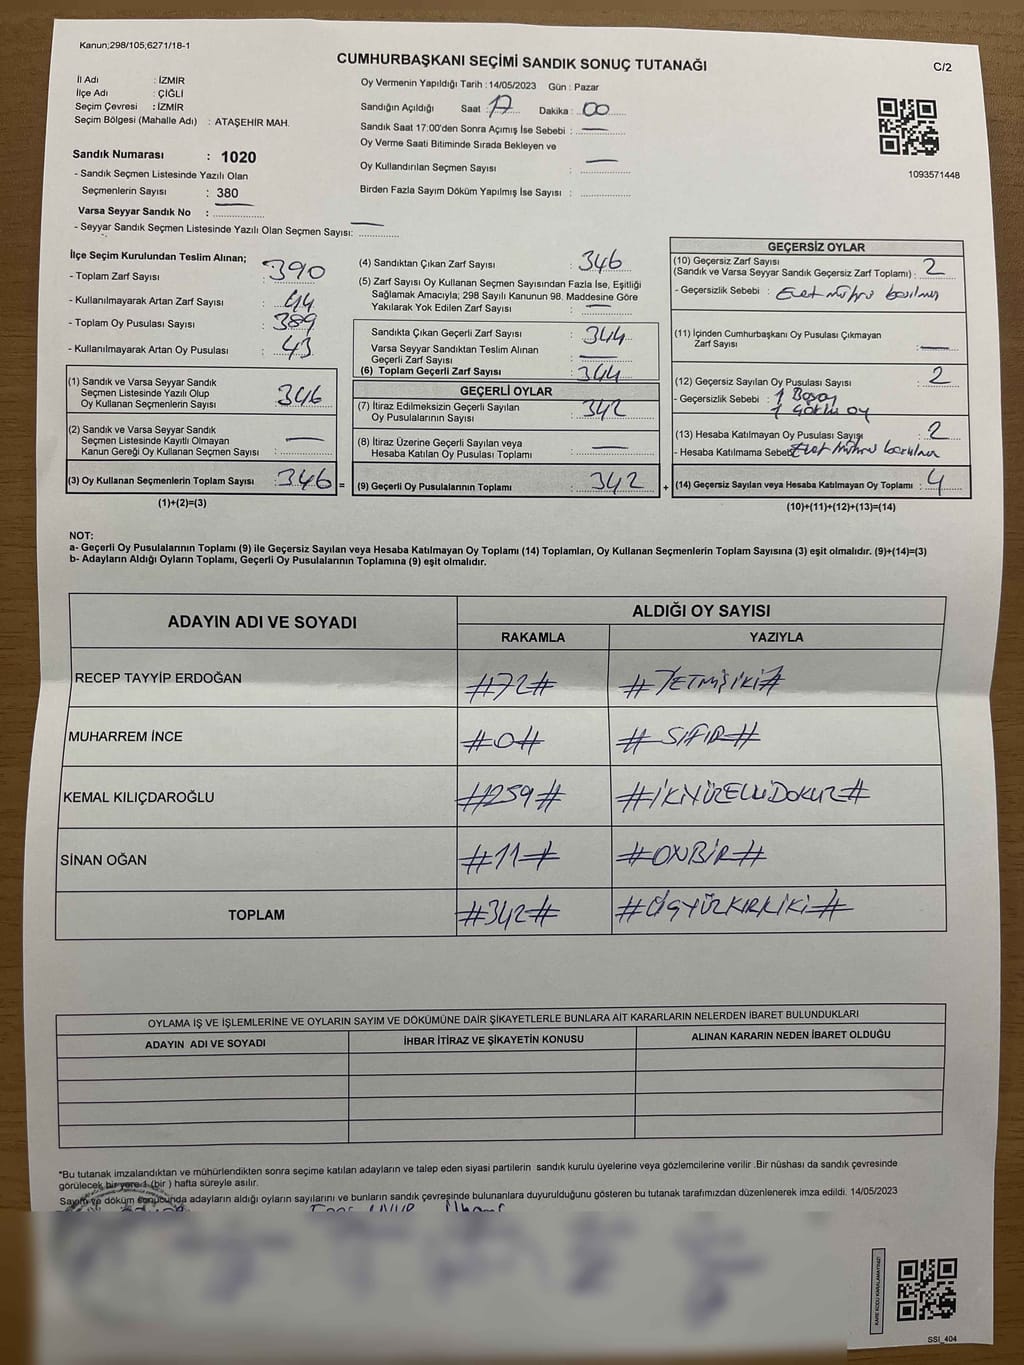 Kanun;298/105,6271/18-1
CUMHURBAŞKANI SEÇİMİ SANDIK SONUÇ TUTANAĞI
C/2
İl Adı : İZMİR
İlçe Adı : ÇİĞLİ
Seçim Çevresi : İZMİR
Seçim Bölgesi (Mahalle Adı) : ATAŞEHİR MAH.
Sandık Numarası : 1020
- Sandık Seçmen Listesinde Yazılı Olan
Seçmenlerin Sayısı : 380
Varsa Seyyar Sandık No :
- Seyyar Sandık Seçmen Listesinde Yazılı Olan Seçmen Sayısı:
Oy Vermenin Yapıldığı Tarih : 14/05/2023 Gün : Pazar
Sandığın Açıldığı Saat : 17 Dakika : 00
Sandık Saat 17:00'den Sonra Açımış İse Sebebi : —
Oy Verme Saati Bitiminde Sırada Bekleyen ve
Oy Kullandırılan Seçmen Sayısı : —
Birden Fazla Sayım Döküm Yapılmış İse Sayısı :
1093571448
İlçe Seçim Kurulundan Teslim Alınan;
- Toplam Zarf Sayısı : 390
- Kullanılmayarak Artan Zarf Sayısı : 44
- Toplam Oy Pusulası Sayısı : 389
- Kullanılmayarak Artan Oy Pusulası : 43
(1) Sandık ve Varsa Seyyar Sandık
Seçmen Listesinde Yazılı Olup
Oy Kullanan Seçmenlerin Sayısı : 346
(2) Sandık ve Varsa Seyyar Sandık
Seçmen Listesinde Kayıtlı Olmayan
Kanun Gereği Oy Kullanan Seçmen Sayısı : —
(3) Oy Kullanan Seçmenlerin Toplam Sayısı : 346 =
(1)+(2)=(3)
(4) Sandıktan Çıkan Zarf Sayısı : 346
(5) Zarf Sayısı Oy Kullanan Seçmen Sayısından Fazla İse, Eşitliği
Sağlamak Amacıyla; 298 Sayılı Kanunun 98. Maddesine Göre
Yakılarak Yok Edilen Zarf Sayısı : —
Sandıkta Çıkan Geçerli Zarf Sayısı : 344
Varsa Seyyar Sandıktan Teslim Alınan
Geçerli Zarf Sayısı : —
(6) Toplam Geçerli Zarf Sayısı : 344
GEÇERLİ OYLAR
(7) İtiraz Edilmeksizin Geçerli Sayılan
Oy Pusulalarının Sayısı : 342
(8) İtiraz Üzerine Geçerli Sayılan veya
Hesaba Katılan Oy Pusulası Toplamı : —
(9) Geçerli Oy Pusulalarının Toplamı : 342 +
GEÇERSİZ OYLAR
(10) Geçersiz Zarf Sayısı
(Sandık ve Varsa Seyyar Sandık Geçersiz Zarf Toplamı) : 2
- Geçersizlik Sebebi : Evet mührü basılmış
(11) İçinden Cumhurbaşkanı Oy Pusulası Çıkmayan
Zarf Sayısı : —
(12) Geçersiz Sayılan Oy Pusulası Sayısı : 2
- Geçersizlik Sebebi : 1 Boş oy
1 Çoklu oy
(13) Hesaba Katılmayan Oy Pusulası Sayısı : 2
- Hesaba Katılmama Sebebi Evet mührü basılmış
(14) Geçersiz Sayılan veya Hesaba Katılmayan Oy Toplamı : 4
(10)+(11)+(12)+(13)=(14)
NOT:
a- Geçerli Oy Pusulalarının Toplamı (9) ile Geçersiz Sayılan veya Hesaba Katılmayan Oy Toplamı (14) Toplamları, Oy Kullanan Seçmenlerin Toplam Sayısına (3) eşit olmalıdır. (9)+(14)=(3)
b- Adayların Aldığı Oyların Toplamı, Geçerli Oy Pusulalarının Toplamına (9) eşit olmalıdır.
ADAYIN ADI VE SOYADI
ALDIĞI OY SAYISI
RAKAMLA YAZIYLA
RECEP TAYYİP ERDOĞAN #72# #YETMİŞİKİ#
MUHARREM İNCE #0# #SIFIR#
KEMAL KILIÇDAROĞLU #259# #İKİYÜZELLİDOKUZ#
SİNAN OĞAN #11# #ONBİR#
TOPLAM #342# #ÜÇYÜZKIRKİKİ#
OYLAMA İŞ VE İŞLEMLERİNE VE OYLARIN SAYIM VE DÖKÜMÜNE DAİR ŞİKAYETLERLE BUNLARA AİT KARARLARIN NELERDEN İBARET BULUNDUKLARI
ADAYIN ADI VE SOYADI İHBAR İTİRAZ VE ŞİKAYETİN KONUSU ALINAN KARARIN NEDEN İBARET OLDUĞU
*Bu tutanak imzalandıktan ve mühürlendikten sonra seçime katılan adayların ve talep eden siyasi partilerin sandık kurulu üyelerine veya gözlemcilerine verilir .Bir nüshası da sandık çevresinde
görülecek bir yere 1 (bir ) hafta süreyle asılır.
Sayım ve döküm sonucunda adayların aldığı oyların sayılarını ve bunların sandık çevresinde bulunanlara duyurulduğunu gösteren bu tutanak tarafımızdan düzenlenerek imza edildi. 14/05/2023
KARE KODU KARALAMAYINIZ!
SSI_404